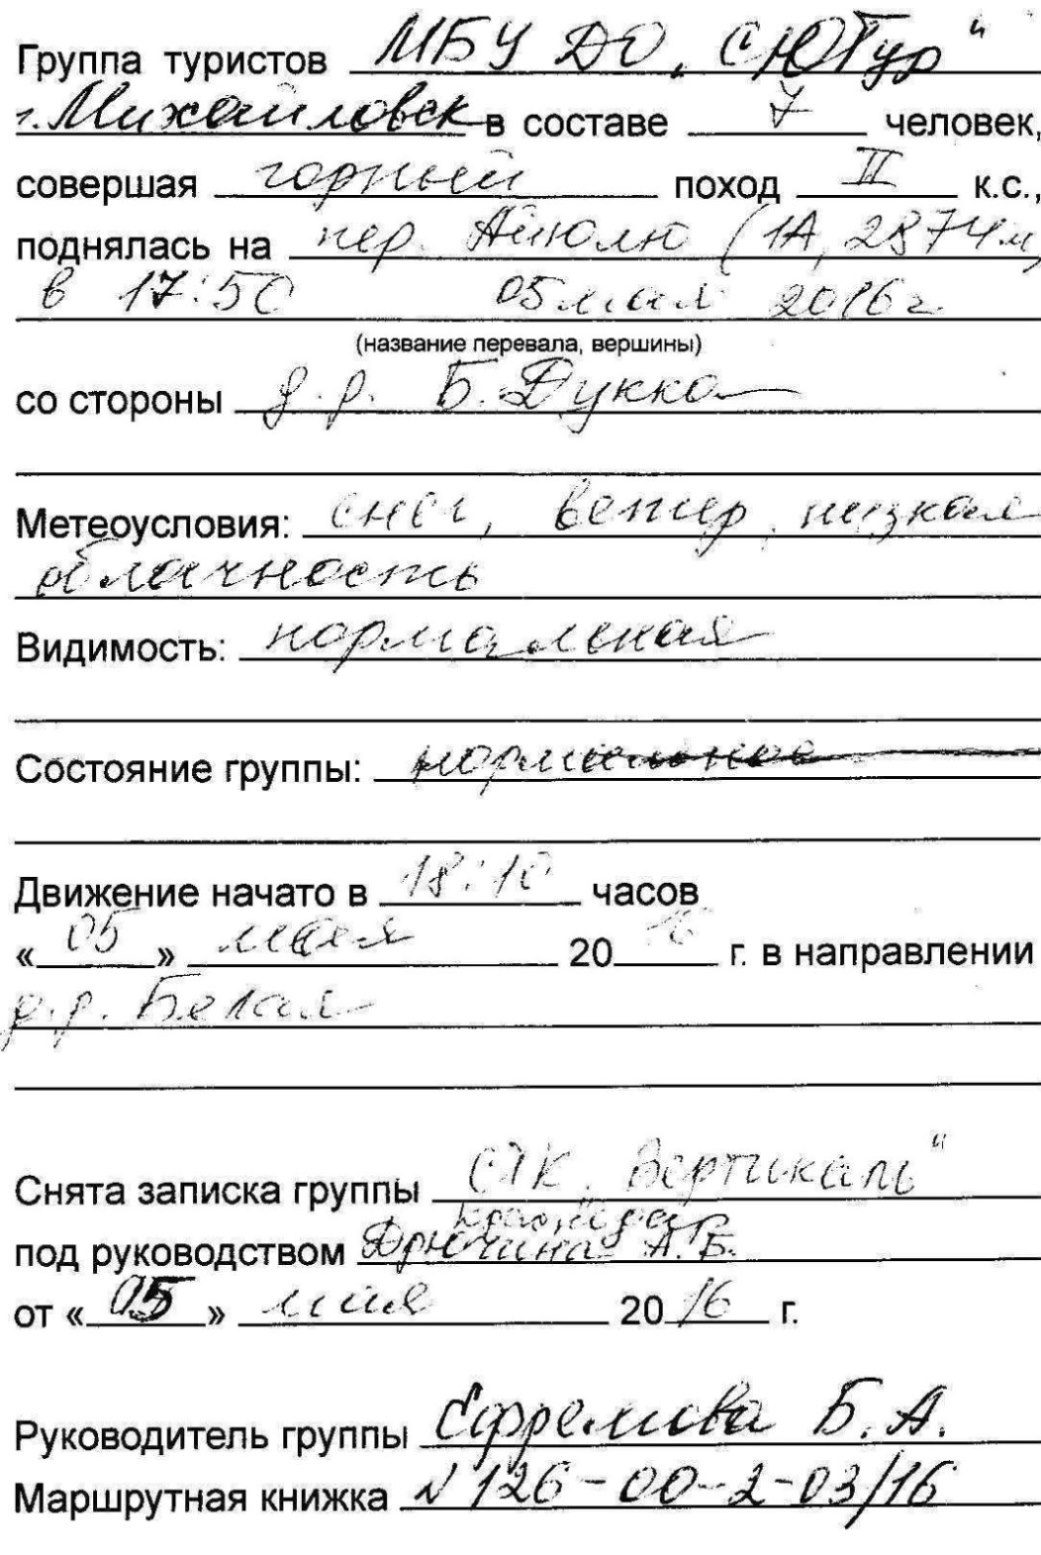 Группа туристов МБУ ДО „СЮТур"
г. Михайловск в составе 7 человек,
совершая горный поход II к.с.,
поднялась на пер. Айюлю (1А, 2874м,
в 17:50 05 мая 2016г.
(название перевала, вершины)
со стороны д.р. Б. Дукка
Метеоусловия: снег, ветер, низкая
облачность
Видимость: нормальная
Состояние группы: нормальное
Движение начато в 18:10 часов
«05» мая 2016 г. в направлении
р. Белая
Снята записка группы СТК „Вертикаль"
Краснодар
под руководством Дрючина А.Б.
от «05» мая 2016 г.
Руководитель группы Ефремова Б.А.
Маршрутная книжка N 126-00-2-03/16